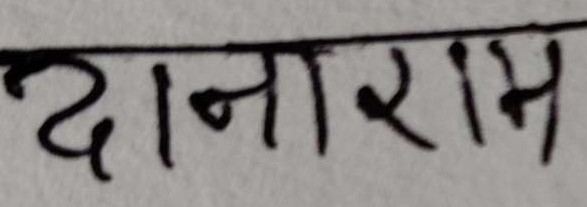 दानाराम